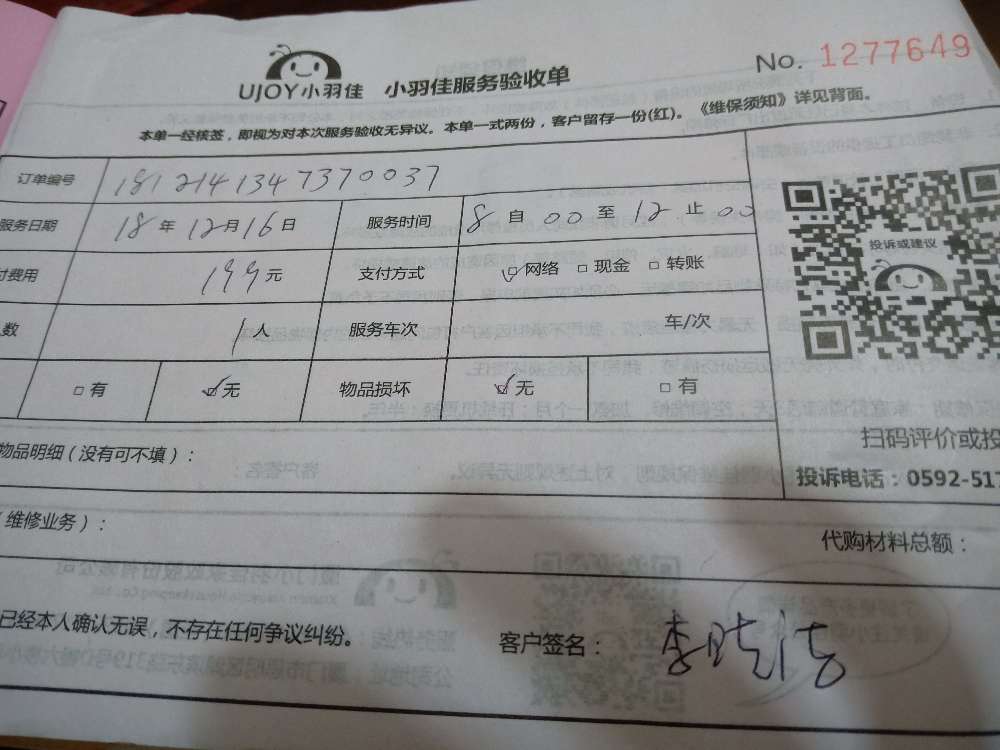 UJOY小羽佳 小羽佳服务验收单 No. 1277649
本单一经核签，即视为对本次服务验收无异议。本单一式两份，客户留存一份(红)。《维保须知》详见背面。
订单编号 1812141347370037
服务日期 18年12月16日 服务时间 8自00至12止00
付费用 199元 支付方式 网络 现金 转账
数 1人 服务车次 车/次
有 无 物品损坏 无 有
投诉或建议
物品明细（没有可不填）：
扫码评价或投
投诉电话：0592-517
（维修业务）：
代购材料总额：
已经本人确认无误，不存在任何争议纠纷。 客户签名：